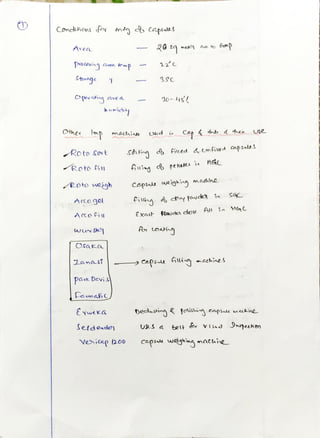 ①
Conditions for mfg of Capsules
Area — 20 sq metr
Processing area temp — 22°C
Storage " — 35C
Operating area humidity — 30-45%
Other Imp machines used in Cap & their use
✓Roto Sort Sorting of filled & unfilled capsules
✓Roto fill filling of pellates in HGC
✓Roto weigh Capsule weighing machine
Accogel filling of dry powder in SGC
Accofill Exact Powder dose fill in HGC
Wurster for Coating
Osaka
Zanasi → Capsule filling machines
Park Devis
Farmatic
Erweka Dedusting & Polishing capsule machine
Seidenader Uses a belt for visual Inspection
Vericap 1200 Capsule weighing machine